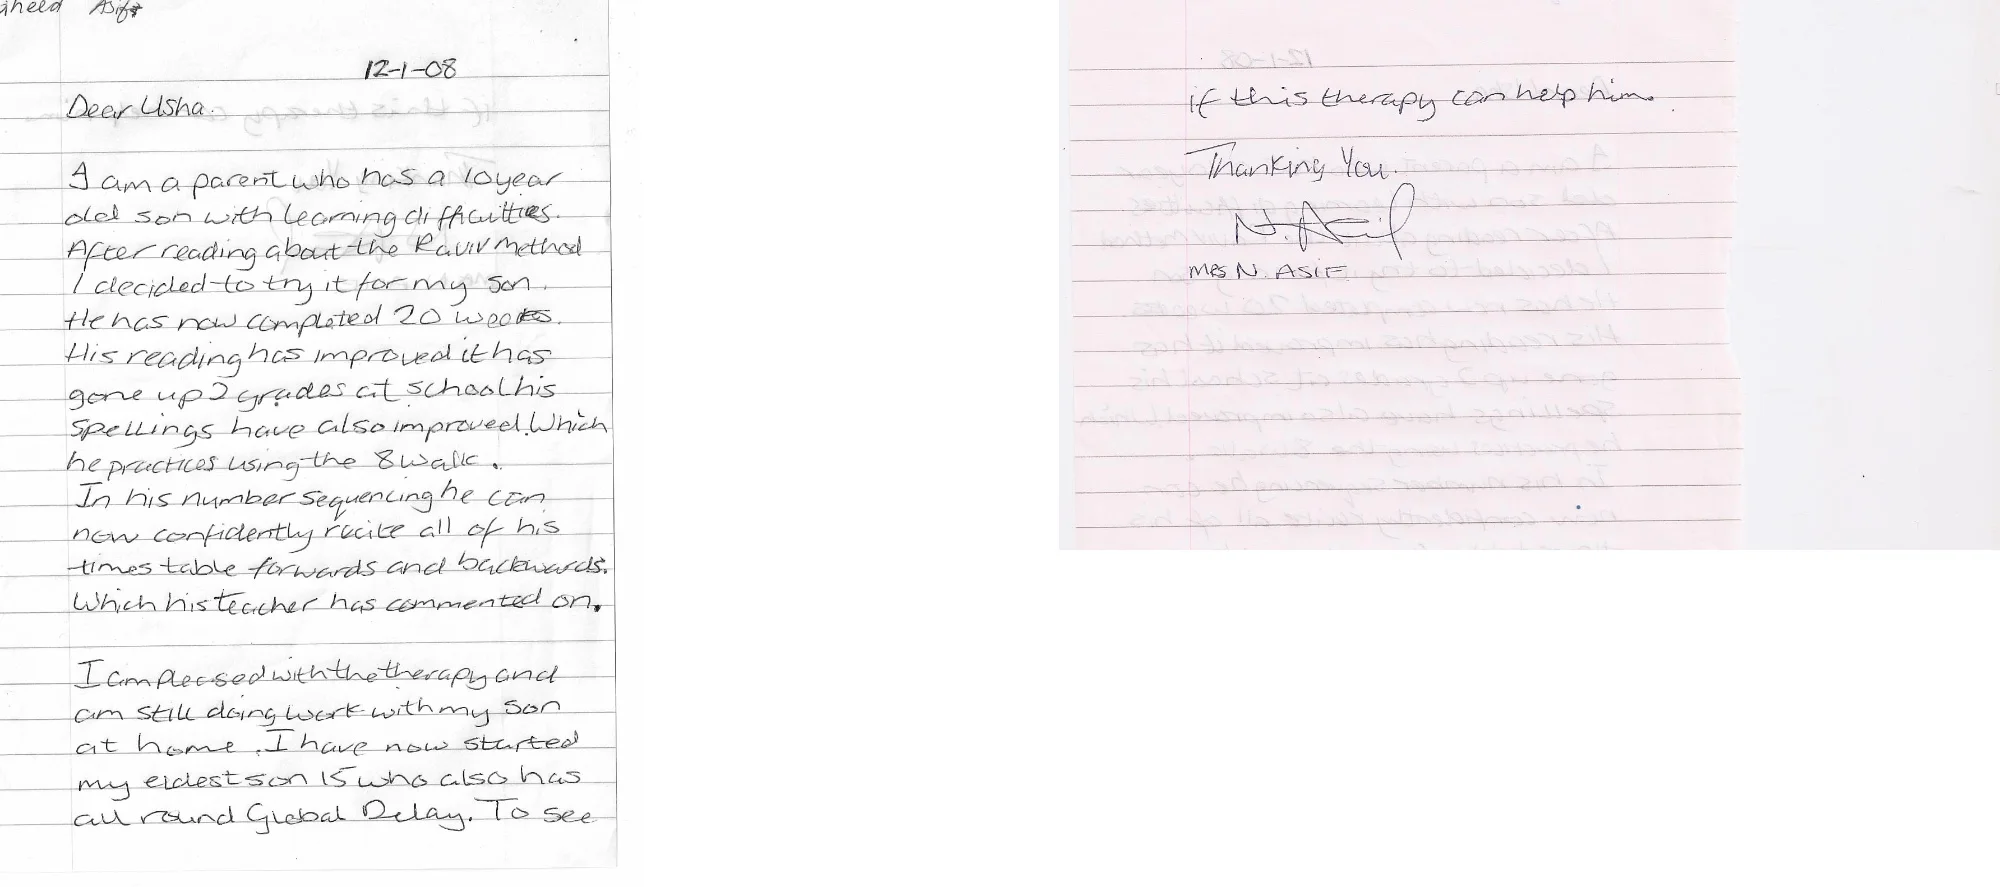 Asif
12-1-08
Dear Usha.
I am a parent who has a 10 year
old son with learning difficulties.
After reading about the Raviv Method
I decided to try it for my son.
He has now completed 20 weeks.
His reading has improved it has
gone up 2 grades at school his
Spellings have also improved. Which
he practices using the 8 walk.
In his number sequencing he can
now confidently recite all of his
times table forwards and backwards.
Which his teacher has commented on.
I am pleased with the therapy and
am still doing work with my son
at home. I have now started
my eldest son 15 who also has
all round Global Delay. To see
if this therapy can help him.
Thanking You.
N. Asif
MRS N. ASIF